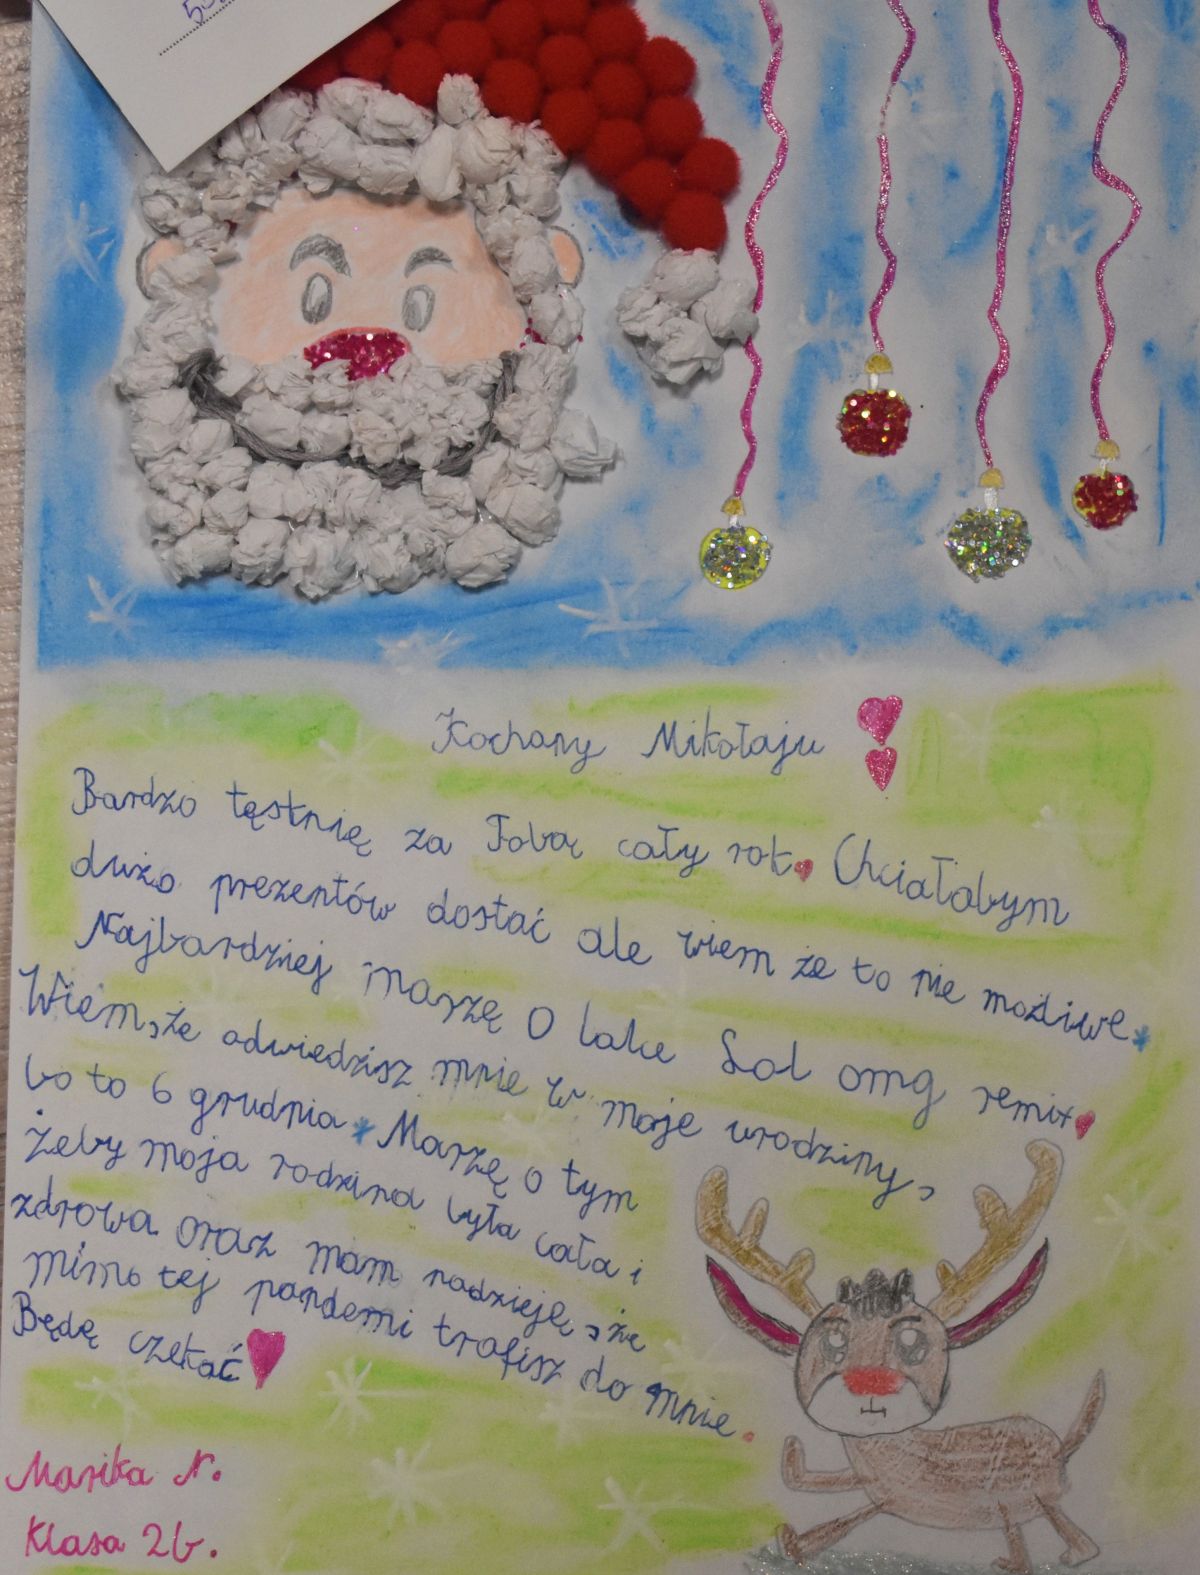 Kochany Mikołaju
Bardzo tęsknię za Tobą cały rok. Chciałabym
dużo prezentów dostać ale wiem że to nie możliwe.
Najbardziej marzę o lalce Lol omg remix
Wiem, że odwiedzisz mnie w moje urodziny,
bo to 6 grudnia Marzę o tym
żeby moja rodzina była cała i
zdrowa oraz mam nadzieję, że
mimo tej pandemi trafisz do mnie.
Będę czekać
Marika N.
Klasa 2b.